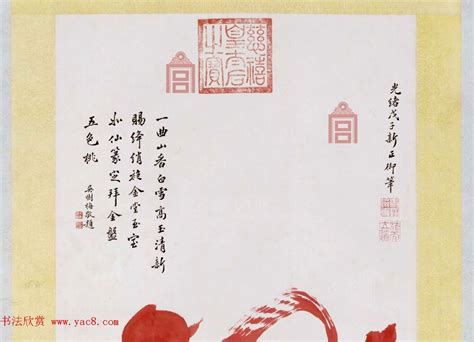 慈禧皇太后之寶
光緒戊子新正御筆
一曲山香白雪高玉清新
賜絳綃袍金堂玉室
仙篆定拜金盤
五色桃
吳樹梅敬題
书法欣赏 www.yac8.com